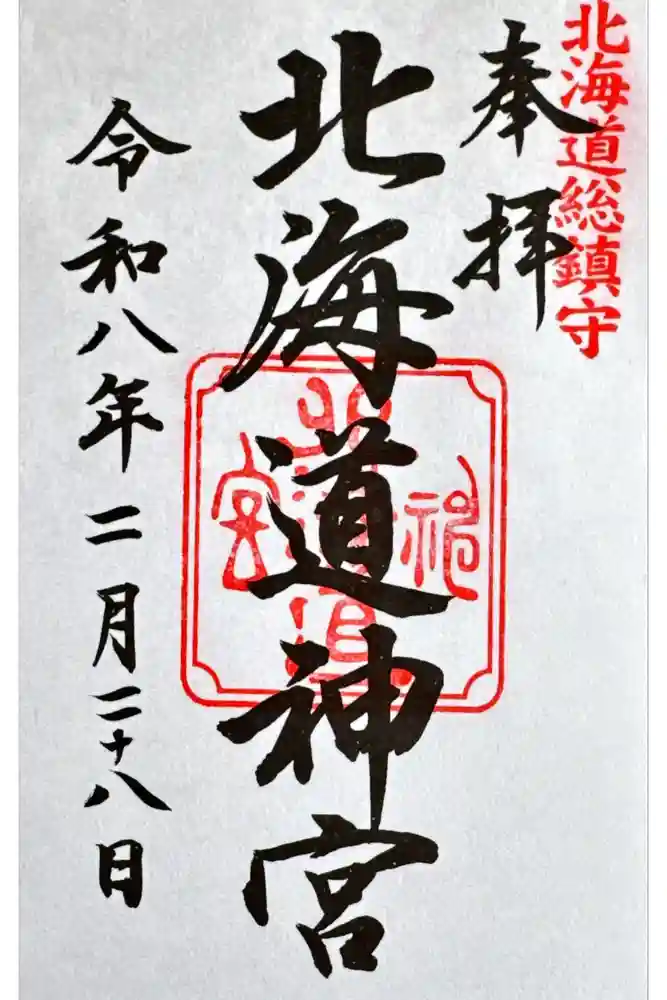 北海道総鎮守
奉拝
北海道神宮
令和八年二月二十八日